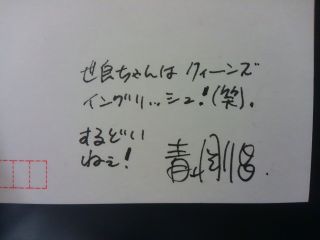 世良ちゃんは クィーンズ
イングリッシュ!(笑).
するどい
ねェ!
青山剛昌.